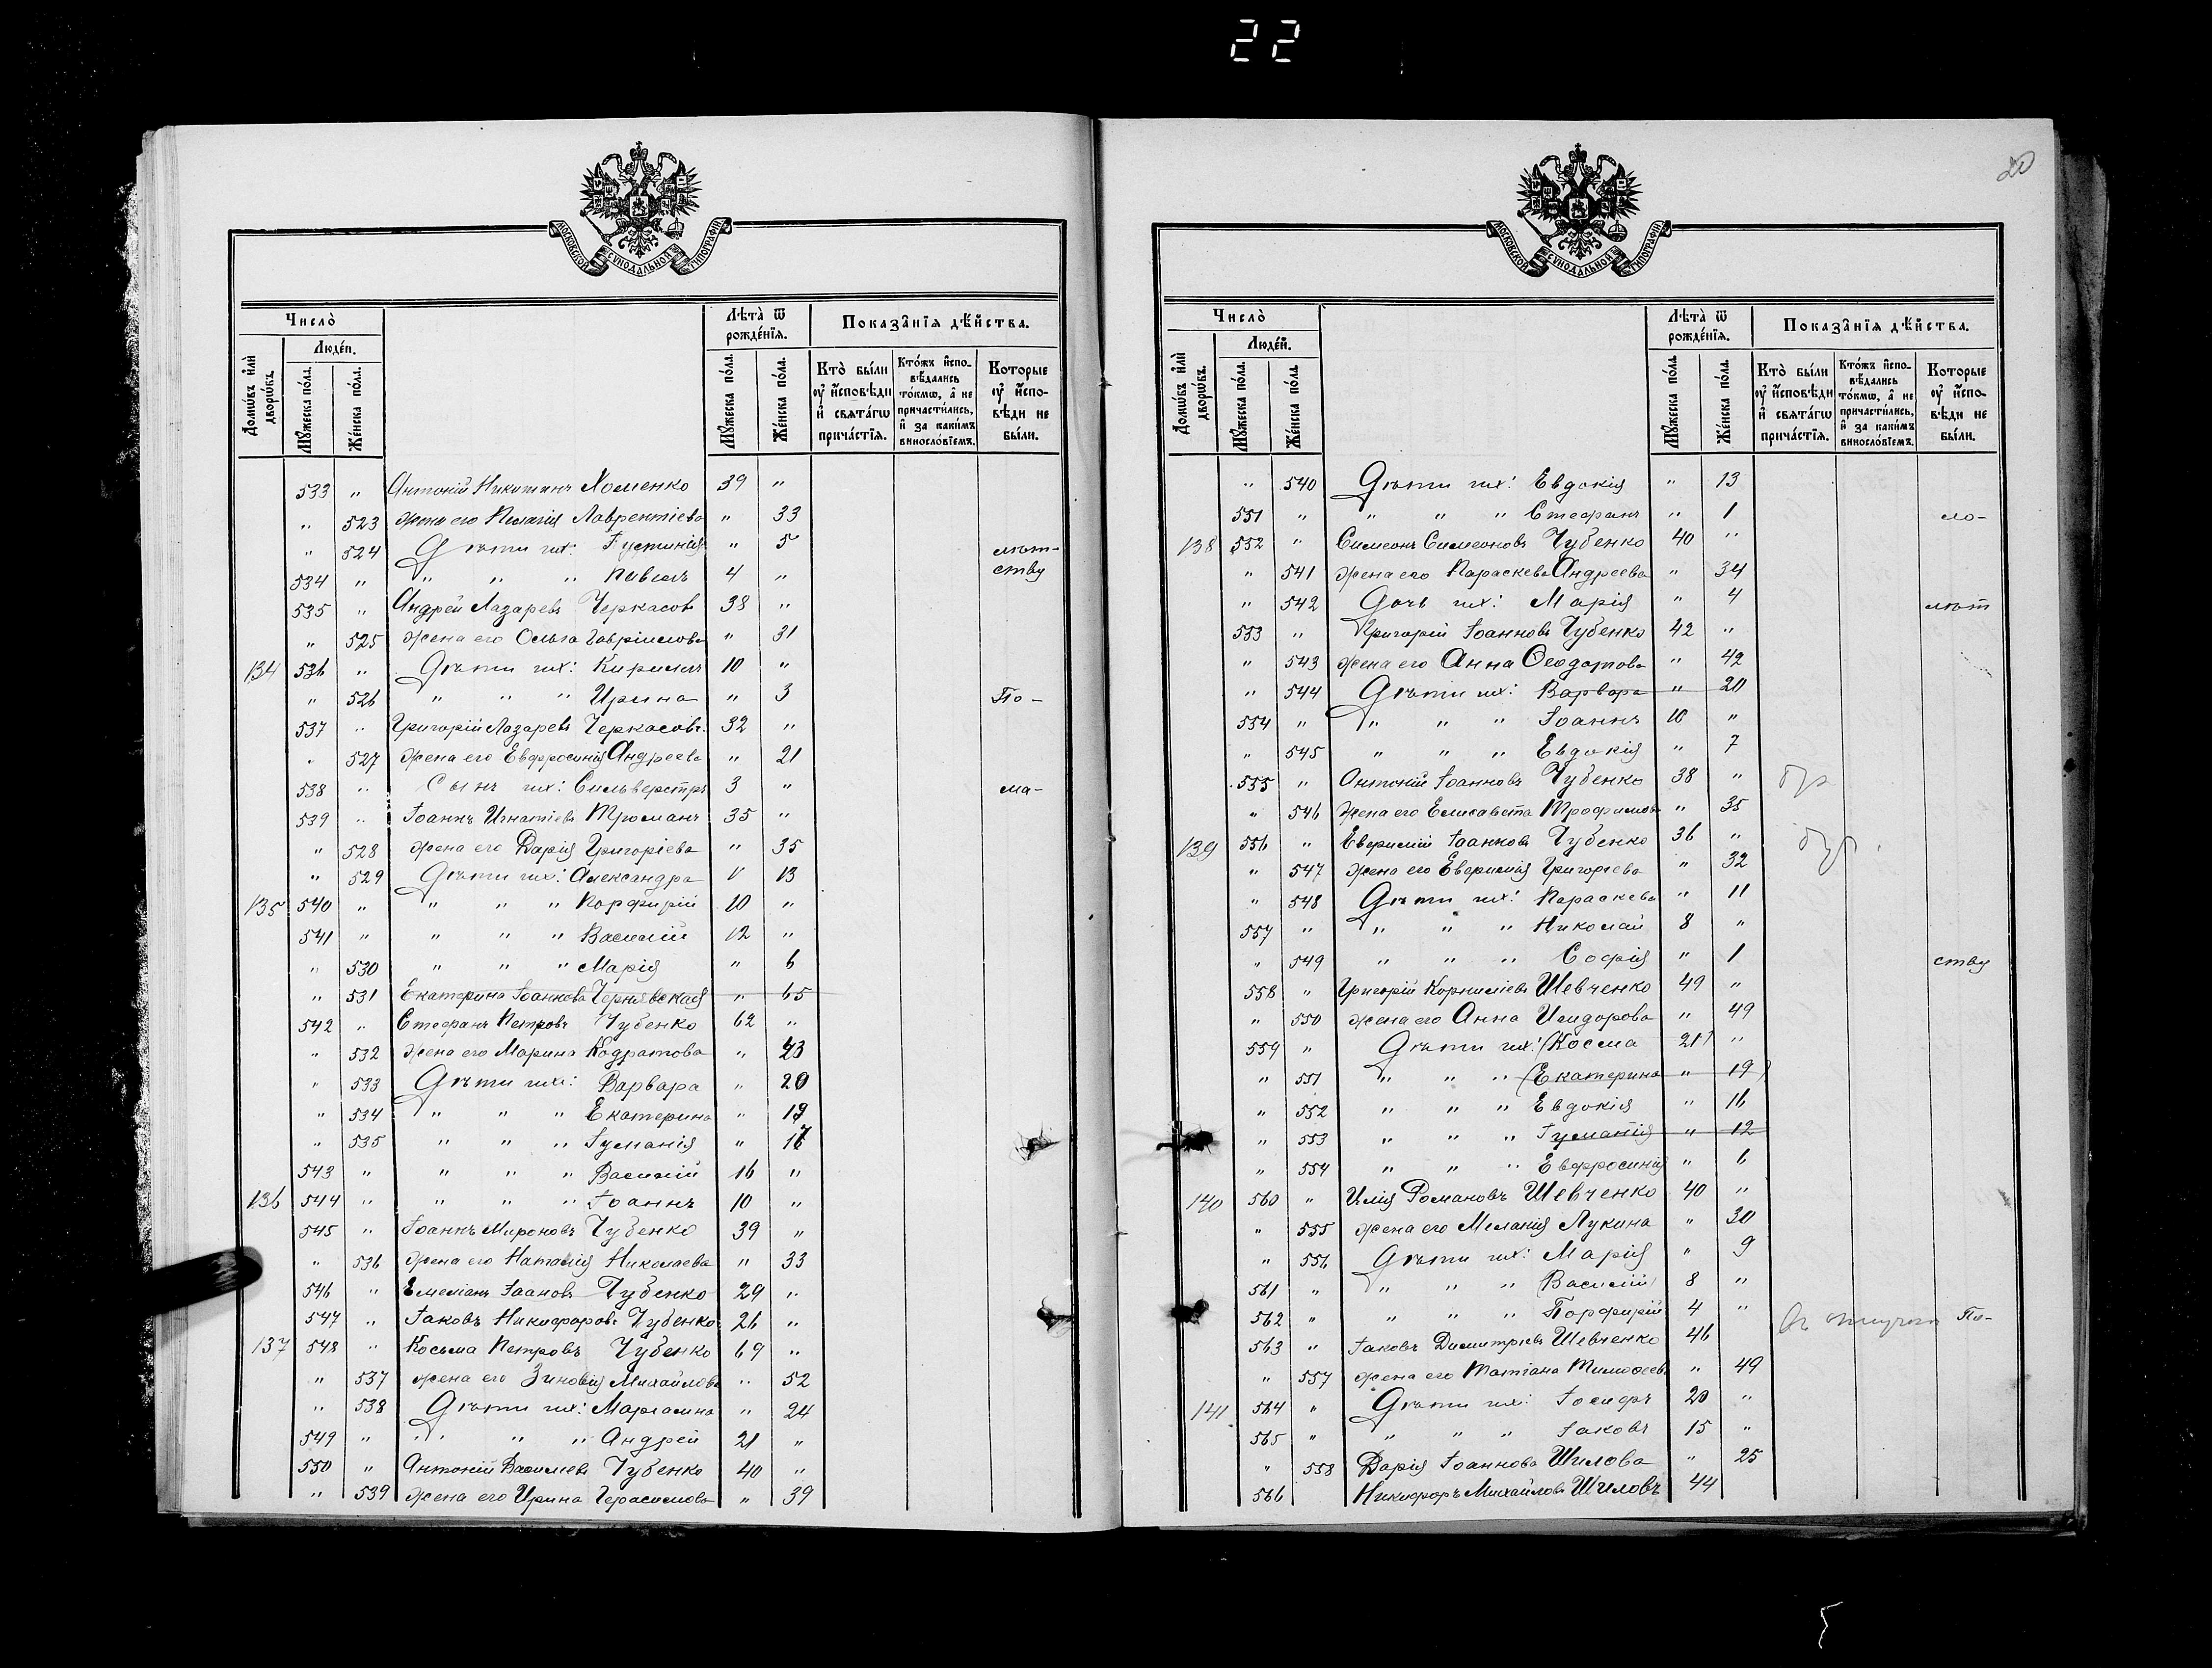 22
20
МОСКОВСКОЙ СѴНОДАЛЬНОЙ ТИПОГРАФІИ
Число̀
Людей.
Домѡвъ и҆лѝ дворѡвъ.
Мꙋжеска по́ла.
Же́нска по́ла.
Лѣта̀ ѿ рожде́нїѧ.
Мꙋжеска по́ла.
Же́нска по́ла.
Показа̑нїѧ дѣ́йства.
Кто̀ бы́ли ᲂу҆ и҆́сповѣди и҆ свѧта́гѡ прича́стїѧ.
Кто́жъ и҆спо-вѣ́дались то́кмѡ, а҆ не причасти́лись, и҆ за каки́мъ винослѡ́вїемъ.
Которые ᲂу҆ и҆́спо-вѣди не бы́ли.
533 " Антоній Никитинъ Хоменко 39 "
" 523 жена его Пелагія Лаврентіева " 33
" 524 Дѣти ихъ: Іустинія " 5 лѣт-
534 " " " " Павелъ 4 " ству
535 " Андрей Лазаревъ Черкасовъ 38 "
" 525 жена его Ольга Гавріилова " 31
134 536 " Дѣти ихъ: Кириллъ 10 "
" 526 " " " Ирина " 3 По-
537 " Григорій Лазаревъ Черкасовъ 32 "
" 527 жена его Евфросинія Андреева " 21
538 " Сынъ ихъ: Сильверстръ 3 " ма-
539 " Іоаннъ Игнатіевъ Троманъ 35 "
" 528 жена его Дарія Григоріева " 35
" 529 Дѣти ихъ: Александра " 13
135 540 " " " " Порфирій 10 "
541 " " " " Василій 12 "
" 530 " " " Марія " 6
" 531 Екатерина Іоаннова Чернявская " 65
542 " Стефанъ Петровъ Чубенко 62 "
" 532 жена его Марина Кодратова " 43
" 533 Дѣти ихъ: Варвара " 20
" 534 " " " Екатерина " 19
" 535 " " " Іуліанія " 17
543 " " " " Василій 16 "
136 544 " " " " Іоаннъ 10 "
545 " Іоаннъ Мироновъ Чубенко 39 "
" 536 жена его Наталія Николаева " 33
546 " Емеліанъ Іоановъ Чубенко 29 "
547 " Іаковъ Никифоровъ Чубенко 26 "
137 548 " Косьма Петровъ Чубенко 69 "
" 537 жена его Зиновія Михайлова " 52
" 538 Дѣти ихъ: " 24
549 " " " " Андрей 21 "
550 " Антоній Василіевъ Чубенко 40 "
" 539 жена его Ирина Герасимова " 39
Число̀
Людей.
Домѡвъ и҆лѝ дворѡвъ.
Мꙋжеска по́ла.
Же́нска по́ла.
Лѣта̀ ѿ рожде́нїѧ.
Мꙋжеска по́ла.
Же́нска по́ла.
Показа̑нїѧ дѣ́йства.
Кто̀ бы́ли ᲂу҆ и҆́сповѣди и҆ свѧта́гѡ прича́стїѧ.
Кто́жъ и҆спо-вѣ́дались то́кмѡ, а҆ не причасти́лись, и҆ за каки́мъ винослѡ́вїемъ.
Которые ᲂу҆ и҆́спо-вѣди не бы́ли.
МОСКОВСКОЙ СѴНОДАЛЬНОЙ ТИПОГРАФІИ
" 540 Дѣти ихъ: Евдокія " 13
551 " " " " Стефанъ " 1 ло-
138 552 " Симеонъ Симеоновъ Чубенко 40 "
" 541 жена его Параскева Андреева " 34
" 542 Дочь ихъ: Марія " 4 лѣт
553 " Григорій Іоанновъ Чубенко 42 "
" 543 жена его Анна Ѳеодотова " 42
" 544 Дѣти ихъ: Варвара " 20
554 " " " " Іоаннъ 10 "
" 545 " " " Евдокія " 7
555 " Антоній Іоанновъ Чубенко 38 "
" 546 жена его Елисавета Трофимова " 35
139 556 " Евфимій Іоанновъ Чубенко 36 "
" 547 жена его Евфимія Григорьева " 32
" 548 Дѣти ихъ: Параскева " 11
557 " " " " Николай 8 "
" 549 " " " Софія " 1 ству
558 " Григорій Корниліевъ Шевченко 49 "
" 550 жена его Анна Исидорова " 49
559 " Дѣти ихъ: (Косма 21) "
" 551 " " " (Екатерина " 19)
" 552 " " " Евдокія " 16
" 553 " " " Іуліанія " 12
" 554 " " " Евфросинія " 6
140 560 " Илія Романовъ Шевченко 40 "
" 555 жена его Меланія Лукина " 30
" 556 Дѣти ихъ: Марія " 9
561 " " " " Василій 8 "
562 " " " " Порфирій 4 " По-
563 " Іаковъ Димитріевъ Шевченко 46
" 557 жена его Татіана Тимоѳеева " 49
141 564 " Дѣти ихъ: Іосифъ 20 "
565 " " " " Іаковъ 15 "
" 558 Дарія Іоаннова Шилова " 25
566 Никифоръ Михайловъ Шиловъ 44